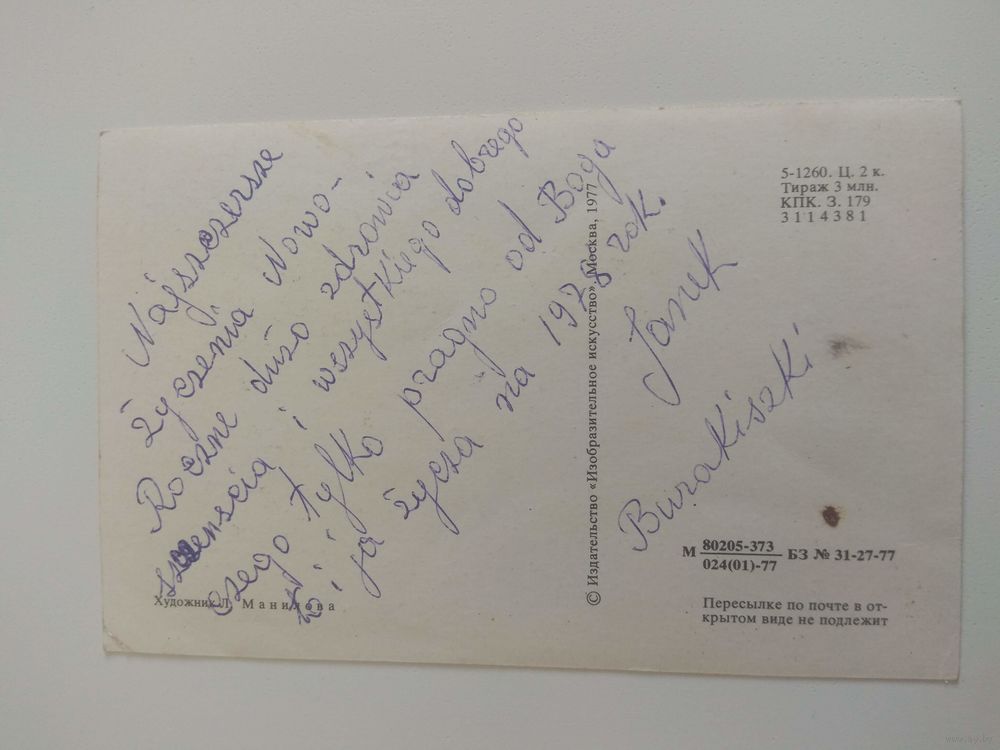 Najszczersze
życzenia Nowo-
Roczne dużo zdrowia
szczenscia i wszystkiego dobrego
czego tylko pragno od Boga
ja życza na 1978 rok.
Janek
Burakiszki
Художник Л. Манилова
© Издательство «Изобразительное искусство». Москва, 1977
5-1260. Ц. 2 к.
Тираж 3 млн.
КПК. З. 179
3114381
М 80205-373 БЗ № 31-27-77
024(01)-77
Пересылке по почте в от-
крытом виде не подлежит